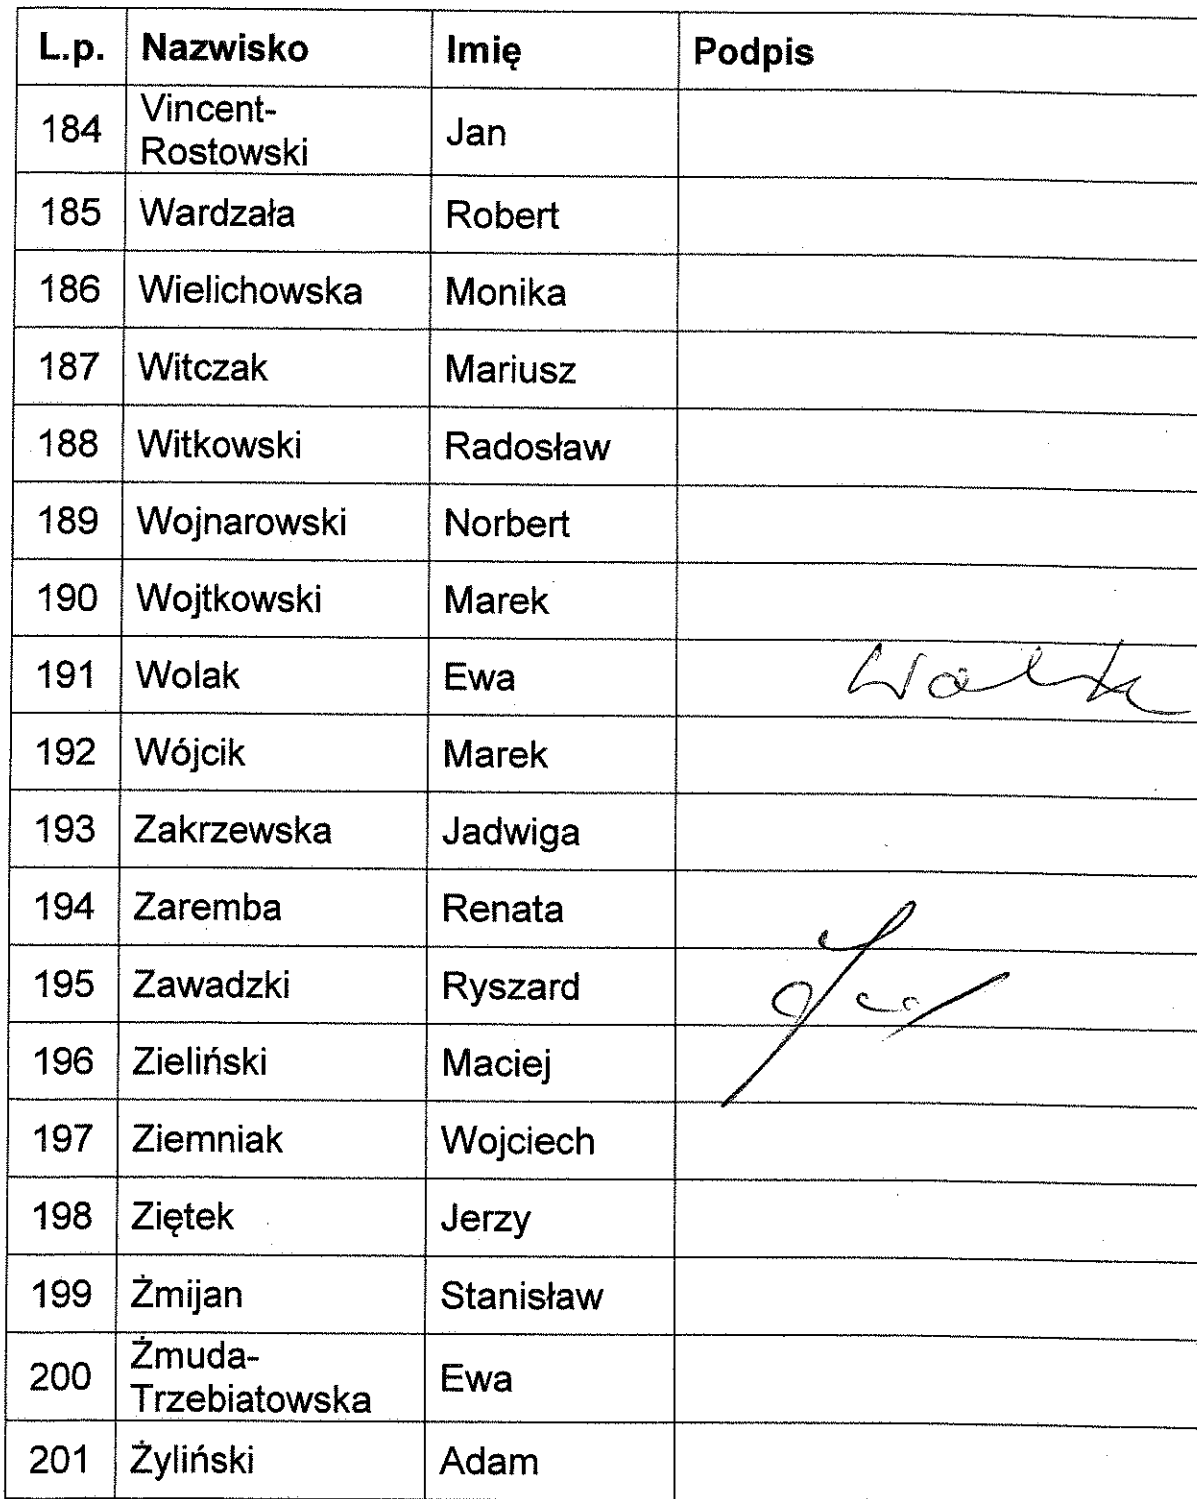 L.p. Nazwisko Imię Podpis
184 Vincent-
Rostowski Jan
185 Wardzała Robert
186 Wielichowska Monika
187 Witczak Mariusz
188 Witkowski Radosław
189 Wojnarowski Norbert
190 Wojtkowski Marek
191 Wolak Ewa Wolak
192 Wójcik Marek
193 Zakrzewska Jadwiga
194 Zaremba Renata
195 Zawadzki Ryszard
196 Zieliński Maciej
197 Ziemniak Wojciech
198 Ziętek Jerzy
199 Żmijan Stanisław
200 Żmuda-
Trzebiatowska Ewa
201 Żyliński Adam